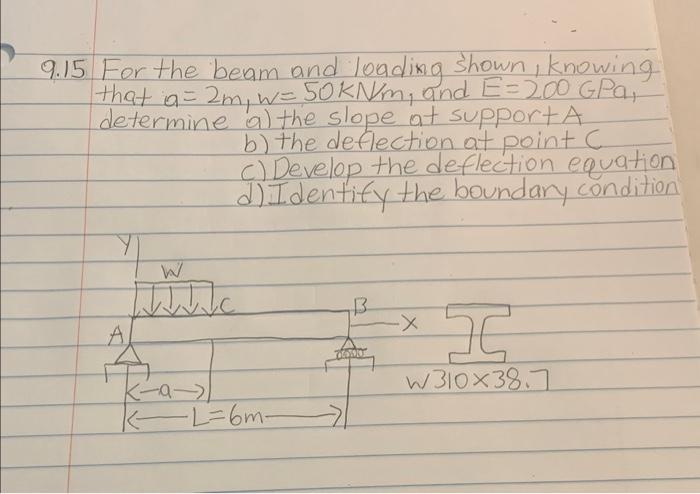 9.15 For the beam and loading shown, knowing
that a = 2m, w = 50 kN/m, and E = 200 GPa,
determine a) the slope at support A
b) the deflection at point C
c) Develop the deflection equation
d) Identify the boundary condition
y
W
C
B
x
A
a
W310×38.7
L=6m